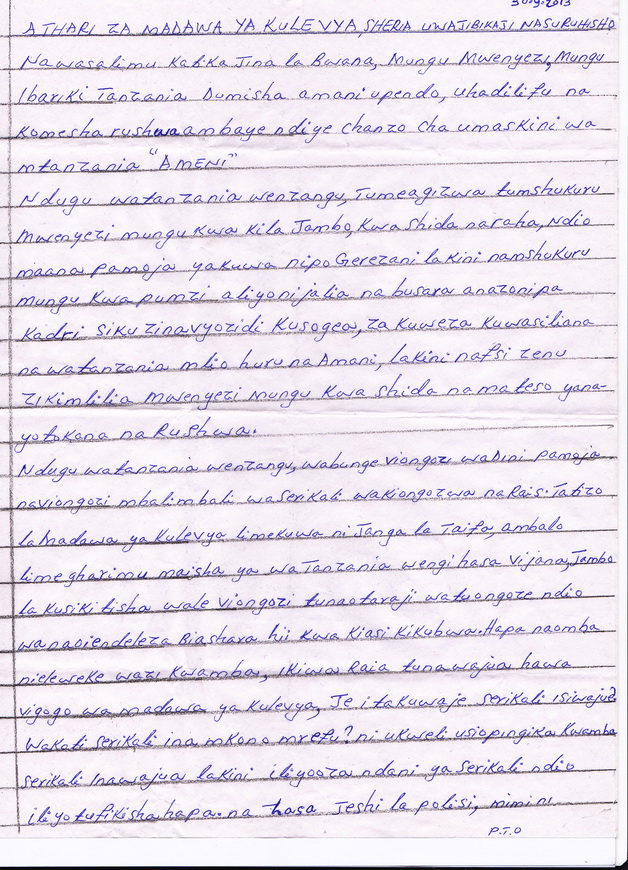 30.9.2013
ATHARI ZA MADAWA YA KULEVYA, SHERIA UWAJIBIKAJI NASURUHISHO
Nawasalimu Katika Jina la Bwana, Mungu Mwenyezi, Mungu
Ibariki Tanzania Dumisha amani upendo, uhadilifu na
Komesha rushwa ambaye ndiye chanzo cha umaskini wa
mtanzania "AMENI"
Ndugu watanzania wenzangu, Tumeagizwa tumshukuru
Mwenyezi mungu Kwa Kila Jambo, Kwa Shida na raha, Ndio
maana pamoja yakuwa nipo Gerezani lakini namshukuru
mungu Kwa pumzi aliyonijalia na busara anazonipa
Kadri siku zinavyozidi Kusogea, za Kuweza Kuwasiliana
na watanzania mlio huru na Amani, lakini nafsi zenu
zikimlilia Mwenyezi Mungu Kwa Shida na mateso yana-
yotokana na Rushwa.
Ndugu watanzania wenzangu, wabunge viongozi wa Dini pamoja
naviongozi mbalimbali wa Serikali wakiongozwa na Rais. Tatizo
la Madawa ya Kulevya limekuwa ni Janga la Taifa, ambalo
lime gharimu maisha ya wa Tanzania wengi hasa Vijana, Jambo
la Kusikitisha wale viongozi tunaotaraji watuongoze ndio
wanaoiendeleza Biashara hii Kwa Kiasi Kikubwa. Hapa naomba
nieleweke wazi Kwamba, Ikiwa Raia tunawajua hawa
vigogo wa madawa ya Kulevya, Je itakuwaje serikali isiwajue?
Wakati Serikali ina mkono mrefu? ni ukweli usiopingika Kwamba
Serikali Inawajua lakini iliyooza ndani ya Serikali ndio
iliyotufikisha hapa. na hasa Jeshi la polisi, mimi ni
P.T.O